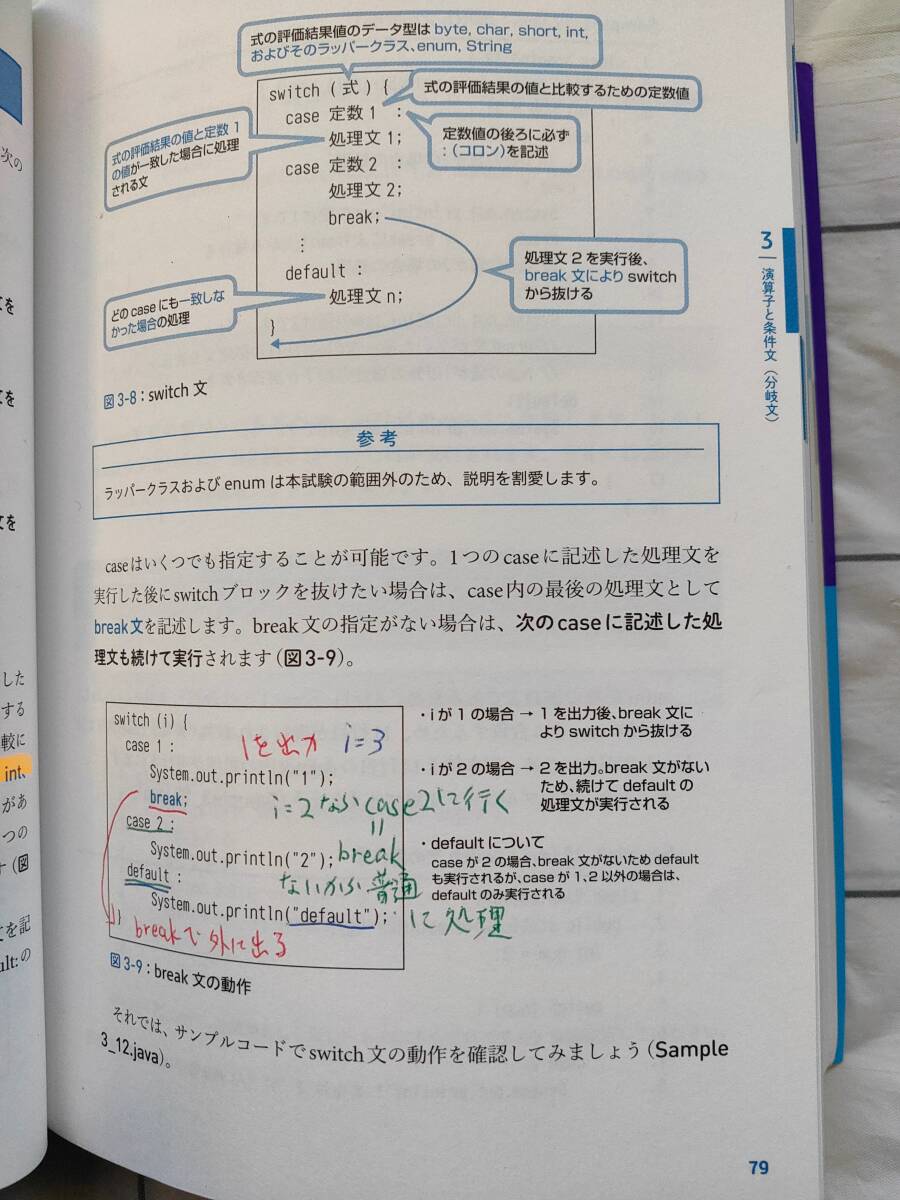 式の評価結果値のデータ型は byte, char, short, int,
およびそのラッパークラス、enum, String
switch ( 式 ) {
式の評価結果の値と比較するための定数値
case 定数 1 :
式の評価結果の値と定数 1
の値が一致した場合に処理
される文
処理文 1;
定数値の後ろに必ず
: (コロン) を記述
case 定数 2 :
処理文 2;
break;
⋮
処理文 2 を実行後、
break 文により switch
から抜ける
default :
どの case にも一致しな
かった場合の処理
処理文 n;
}
図 3-8 : switch 文
参考
ラッパークラスおよび enum は本試験の範囲外のため、説明を割愛します。
caseはいくつでも指定することが可能です。1つのcaseに記述した処理文を
実行した後にswitchブロックを抜けたい場合は、case内の最後の処理文として
break文を記述します。break文の指定がない場合は、次のcaseに記述した処
理文も続けて実行されます(図3-9)。
switch (i) {
case 1 :
1を出力 i=3
System.out.println("1");
break;
i=2ならcase2に行く
case 2 :
=
System.out.println("2");
break
default :
ないから普通
System.out.println("default");
に処理
}
breakで外に出る
・i が 1 の場合 → 1 を出力後、break 文に
より switch から抜ける
・i が 2 の場合 → 2 を出力。break 文がない
ため、続けて default の
処理文が実行される
・default について
case が 2 の場合、break 文がないため default
も実行されるが、case が 1, 2 以外の場合は、
default のみ実行される
図 3-9 : break 文の動作
それでは、サンプルコードでswitch文の動作を確認してみましょう(Sample
3_12.java)。
3
演算子と条件文(分岐文)
79
次の
を
を
を
した
する
較に
int,
があ
つの
(図
を記
ult:の